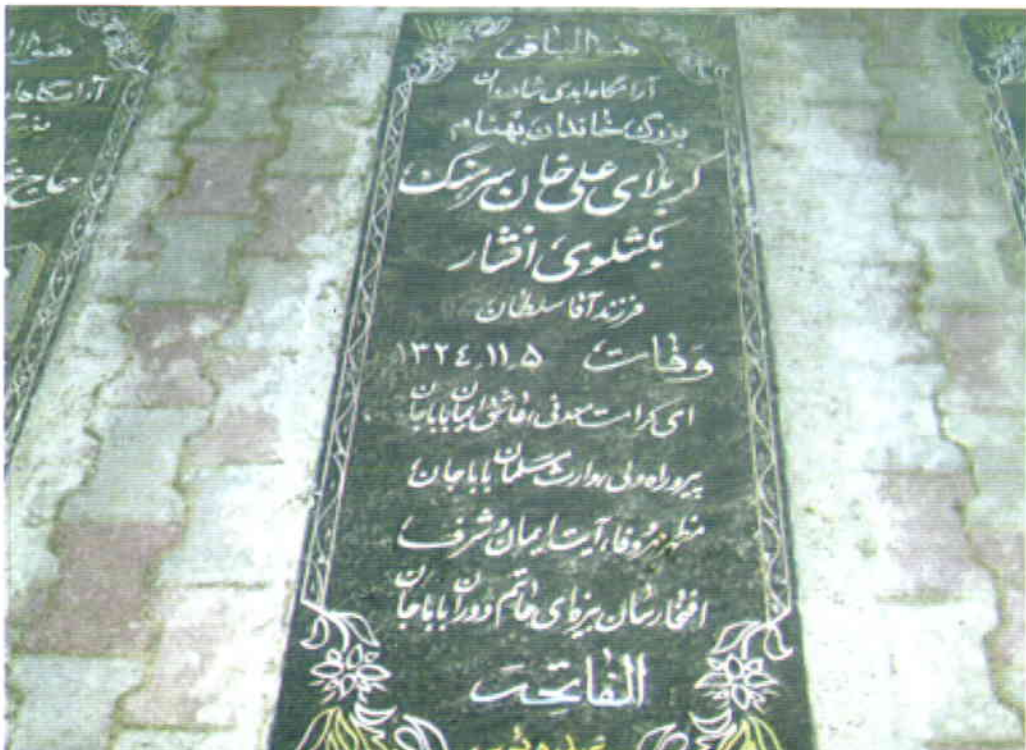 هوالباقی
آرامگاه ابدی شادروان
بزرگ خاندان بهنام
کربلای علی خان سرهنگ
بکشلوی افشار
فرزند آقا سلطان
وفات ۱۳۲٤.۱۱.۵
ای کرامت معدنی، عاشق ایمان باباجان
پیرو راه ولی، وارث سلمان باباجان
مظهر مهر و وفا، آیت ایمان و شرف
افتخارسان بیزه ای حاتم دوران باباجان
الفاتحه
آرامگاه
حاج